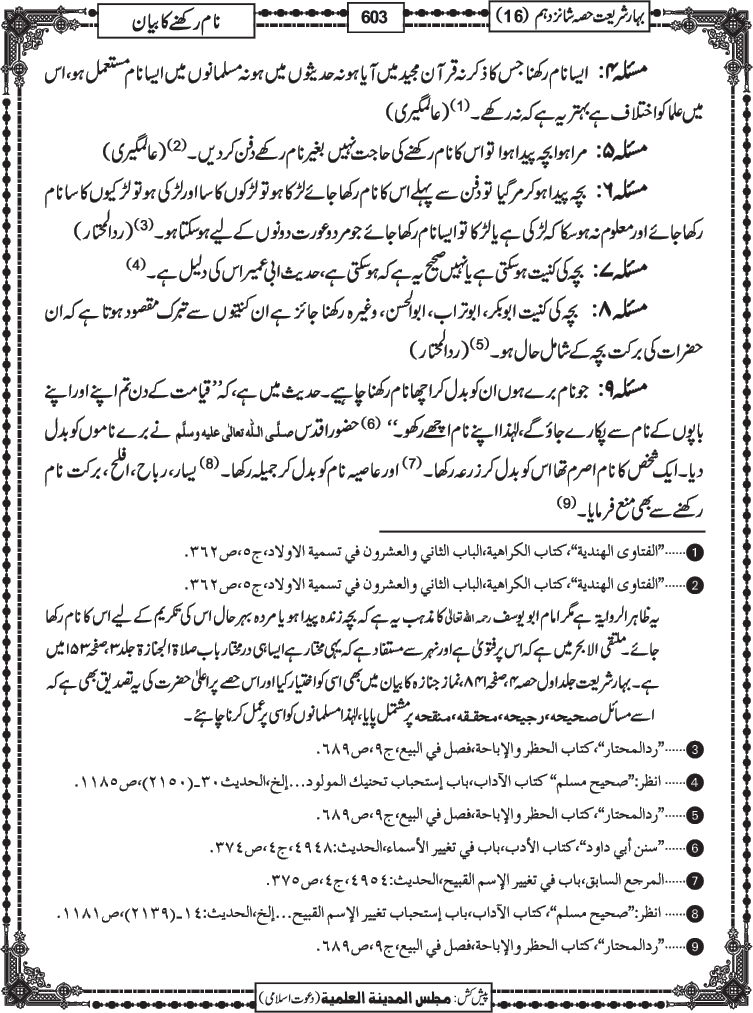 بہار شریعت حصہ شانزدہم (16)
603
نام رکھنے کا بیان
مسئلہ ۴: ایسا نام رکھنا جس کا ذکر نہ قرآن مجید میں آیا ہو نہ حدیثوں میں ہو نہ مسلمانوں میں ایسا نام مستعمل ہو، اس
میں علما کو اختلاف ہے بہتر یہ ہے کہ نہ رکھے۔ (1) (عالمگیری)
مسئلہ ۵: مرا ہوا بچہ پیدا ہوا تو اس کا نام رکھنے کی حاجت نہیں بغیر نام رکھے دفن کر دیں۔ (2) (عالمگیری)
مسئلہ ۶: بچہ پیدا ہو کر مر گیا تو دفن سے پہلے اس کا نام رکھا جائے لڑکا ہو تو لڑکوں کا سا اور لڑکی ہو تو لڑکیوں کا سا نام
رکھا جائے اور معلوم نہ ہو سکا کہ لڑکی ہے یا لڑکا تو ایسا نام رکھا جائے جو مرد و عورت دونوں کے لیے ہو سکتا ہو۔ (3) (ردالمحتار)
مسئلہ ۷: بچہ کی کنیت ہو سکتی ہے یا نہیں صحیح یہ ہے کہ ہو سکتی ہے، حدیث ابی عمیر اس کی دلیل ہے۔ (4)
مسئلہ ۸: بچہ کی کنیت ابوبکر، ابوتراب، ابوالحسن، وغیرہ رکھنا جائز ہے ان کنیتوں سے تبرک مقصود ہوتا ہے کہ ان
حضرات کی برکت بچہ کے شامل حال ہو۔ (5) (ردالمحتار)
مسئلہ ۹: جو نام برے ہوں ان کو بدل کر اچھا نام رکھنا چاہیے۔ حدیث میں ہے، کہ ’’قیامت کے دن تم اپنے اور اپنے
باپوں کے نام سے پکارے جاؤ گے، لہٰذا اپنے نام اچھے رکھو۔‘‘ (6) حضور اقدس صلَّی اللہ تعالٰی علیہ وسلَّم نے برے ناموں کو بدل
دیا۔ ایک شخص کا نام اصرم تھا اس کو بدل کر زرعہ رکھا۔ (7) اور عاصیہ نام کو بدل کر جمیلہ رکھا۔ (8) یسار، رباح، افلح، برکت نام
رکھنے سے بھی منع فرمایا۔ (9)
1......"الفتاوی الھندیة"، کتاب الکراھیة، الباب الثاني والعشرون في تسمیة الاولاد، ج٥، ص٣٦٢.
2......"الفتاوی الھندیة"، کتاب الکراھیة، الباب الثاني والعشرون في تسمیة الاولاد، ج٥، ص٣٦٢.
یہ ظاہر الروایۃ ہے مگر امام ابو یوسف رحمہ اللہ تعالیٰ کا مذہب یہ ہے کہ بچہ زندہ پیدا ہو یا مردہ بہر حال اس کی تکریم کے لیے اس کا نام رکھا
جائے۔ ملتقی الابحر میں ہے کہ اس پر فتویٰ ہے اور نہر سے مستفاد ہے کہ یہی مختار ہے ایسا ہی درمختار باب صلاۃ الجنازۃ جلد ۳، صفحہ ۱۵۳ میں
ہے۔ بہار شریعت جلد اول حصہ ۴، صفحہ ۸۴۱، نماز جنازہ کا بیان میں بھی اسی کو اختیار کیا اور اس حصے پر اعلیٰ حضرت کی یہ تصدیق بھی ہے کہ
اسے مسائل صحیحہ، رجیحہ، محققہ، منقحہ پر مشتمل پایا، لہٰذا مسلمانوں کو اسی پر عمل کرنا چاہئے ۔
3......"ردالمحتار"، کتاب الحظر والإباحة، فصل في البیع، ج٩، ص٦٨٩.
4...... انظر: "صحیح مسلم" کتاب الآداب، باب إستحباب تحنیك المولود...إلخ، الحدیث: ٣٠ـ(٢١٥٠)، ص١١٨٥.
5......"ردالمحتار"، کتاب الحظر والإباحة، فصل في البیع، ج٩، ص٦٨٩.
6......"سنن أبي داود"، کتاب الأدب، باب في تغییر الأسماء، الحدیث: ٤٩٤٨، ج٤، ص٣٧٤.
7......المرجع السابق، باب في تغییر الإسم القبیح، الحدیث: ٤٩٥٤، ج٤، ص٣٧٥.
8...... انظر: "صحیح مسلم"، کتاب الآداب، باب إستحباب تغییر الإسم القبیح...إلخ، الحدیث: ١٤ـ(٢١٣٩)، ص١١٨١.
9......"ردالمحتار"، کتاب الحظر والإباحة، فصل في البیع، ج٩، ص٦٨٩.
پیش کش: مجلس المدینة العلمیة (دعوت اسلامی)